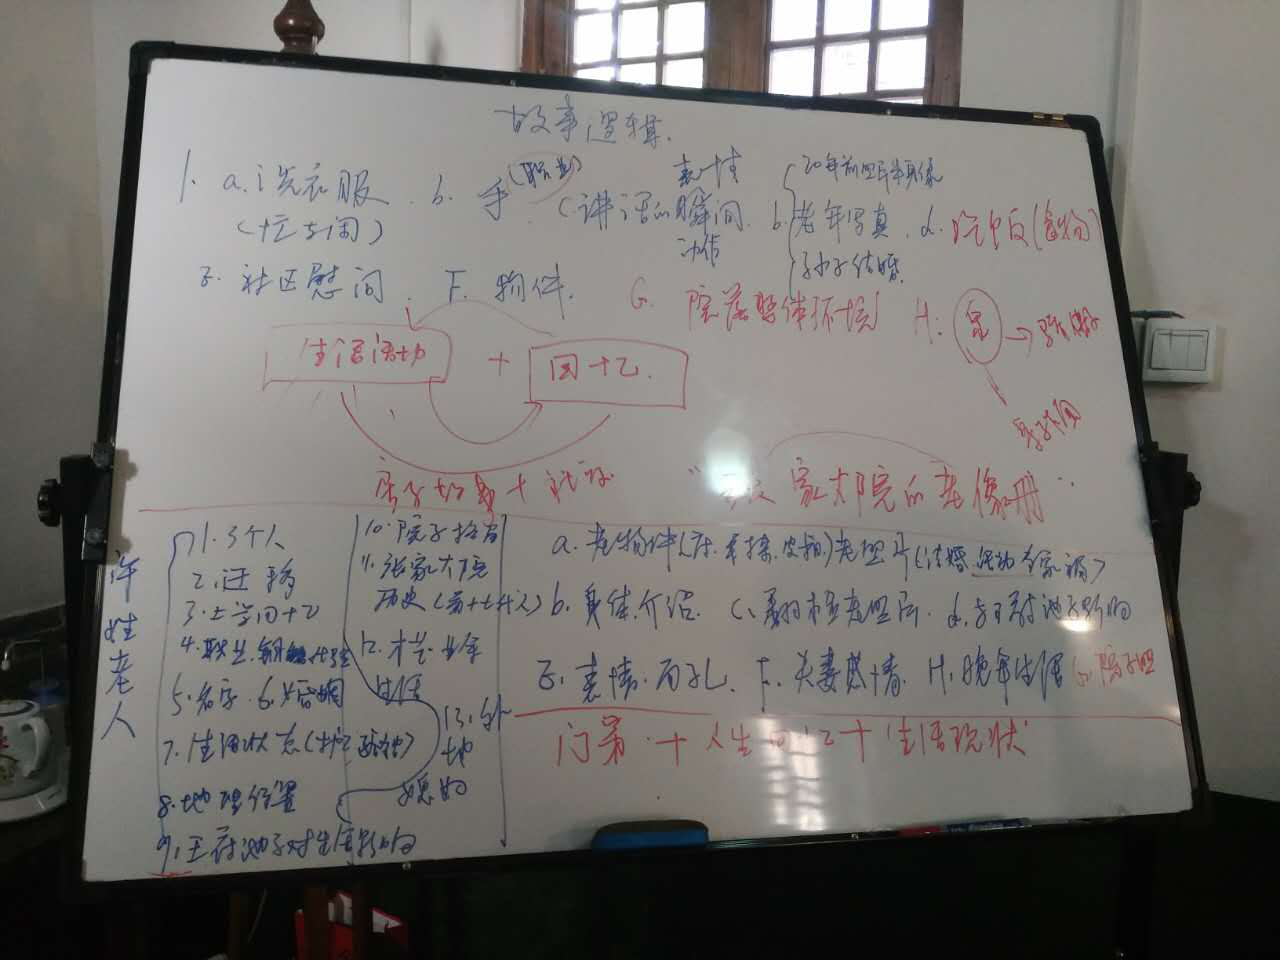 故事逻辑.
1. a. 洗衣服 b. 手 (职业) c. 讲话的瞬间 表情 动作 b. 20年前 老年写真 孙子结婚 d. 吃饭(食物)
(忙与闲)
E. 社区慰问 F. 物件. G. 院落整体环境 H:
生活活动 + 回忆.
房子 + "家大院的老像册"
许姓老人
1. 3个人
2. 迁移
3. 上学回忆
4. 职业.
5. 名字. 6. 婚姻
7. 生活状态
8. 地理位置
9. 王府池子对生活影响
10. 院子格局
11. 张家大院
历史
12. 才艺. 业余
生活
13. 外
地
媳妇
a. 老物件 老照片(结婚. 全家福)
b. 身体. 介绍. c. 翻相老照片. d. 王府池子影响
E. 表情. 面孔. F. 夫妻感情. H. 晚年生活 G. 院子
门第 + 人生回忆 + 生活现状